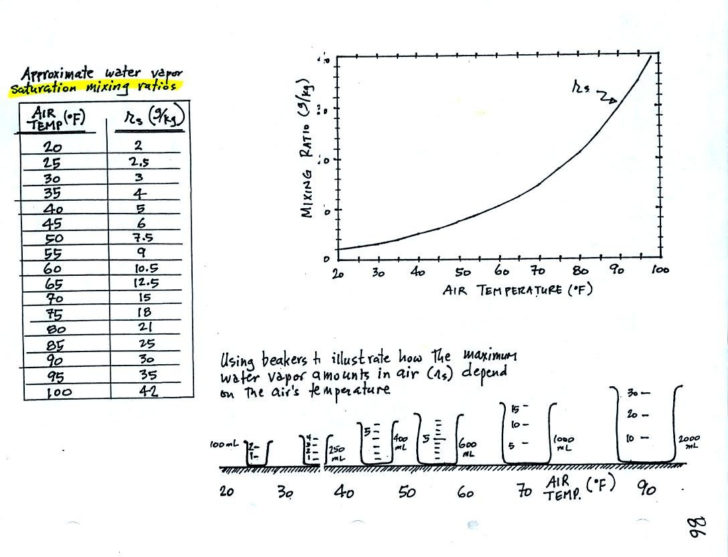 Approximate water vapor
saturation mixing ratios
AIR TEMP (°F) rs (g/kg)
20 2
25 2.5
30 3
35 4
40 5
45 6
50 7.5
55 9
60 10.5
65 12.5
70 15
75 18
80 21
85 25
90 30
95 35
100 42
MIXING RATIO (g/kg)
rs
20 30 40 50 60 70 80 90 100
AIR TEMPERATURE (°F)
Using beakers to illustrate how the maximum
water vapor amounts in air (rs) depend
on the air's temperature
100 mL
2
1
250 mL
5
400 mL
5
600 mL
15
10
5
1000 mL
30
20
10
2000 mL
20 30 40 50 60 70 AIR TEMP. (°F) 90
86